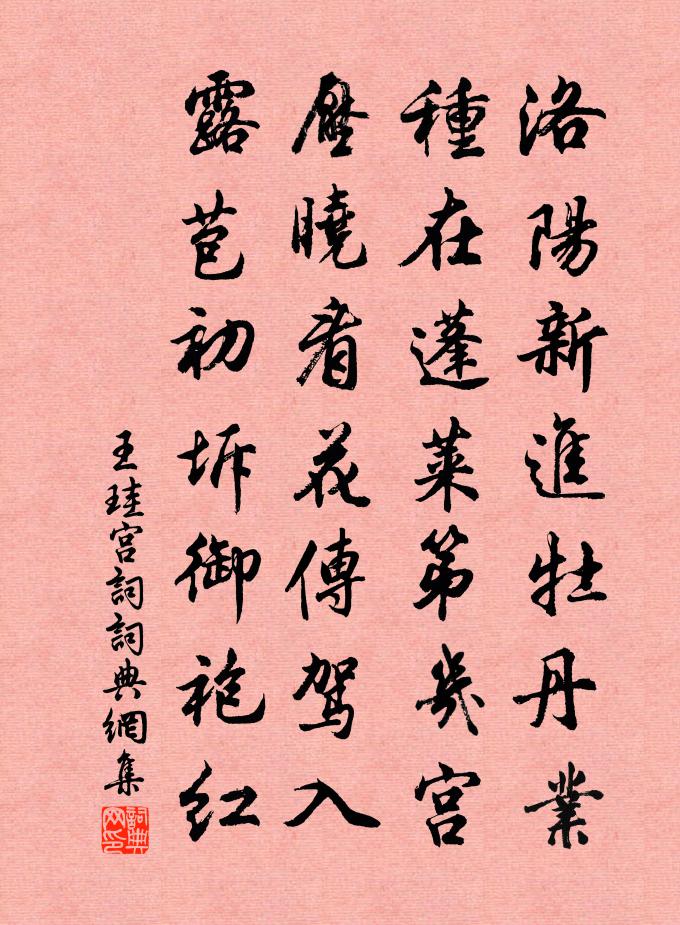 洛陽新進牡丹業
種在蓬萊第幾宮
壓曉看花傳駕入
露苞初坼御袍紅
王珪宮詞詞典網集
詞典网印